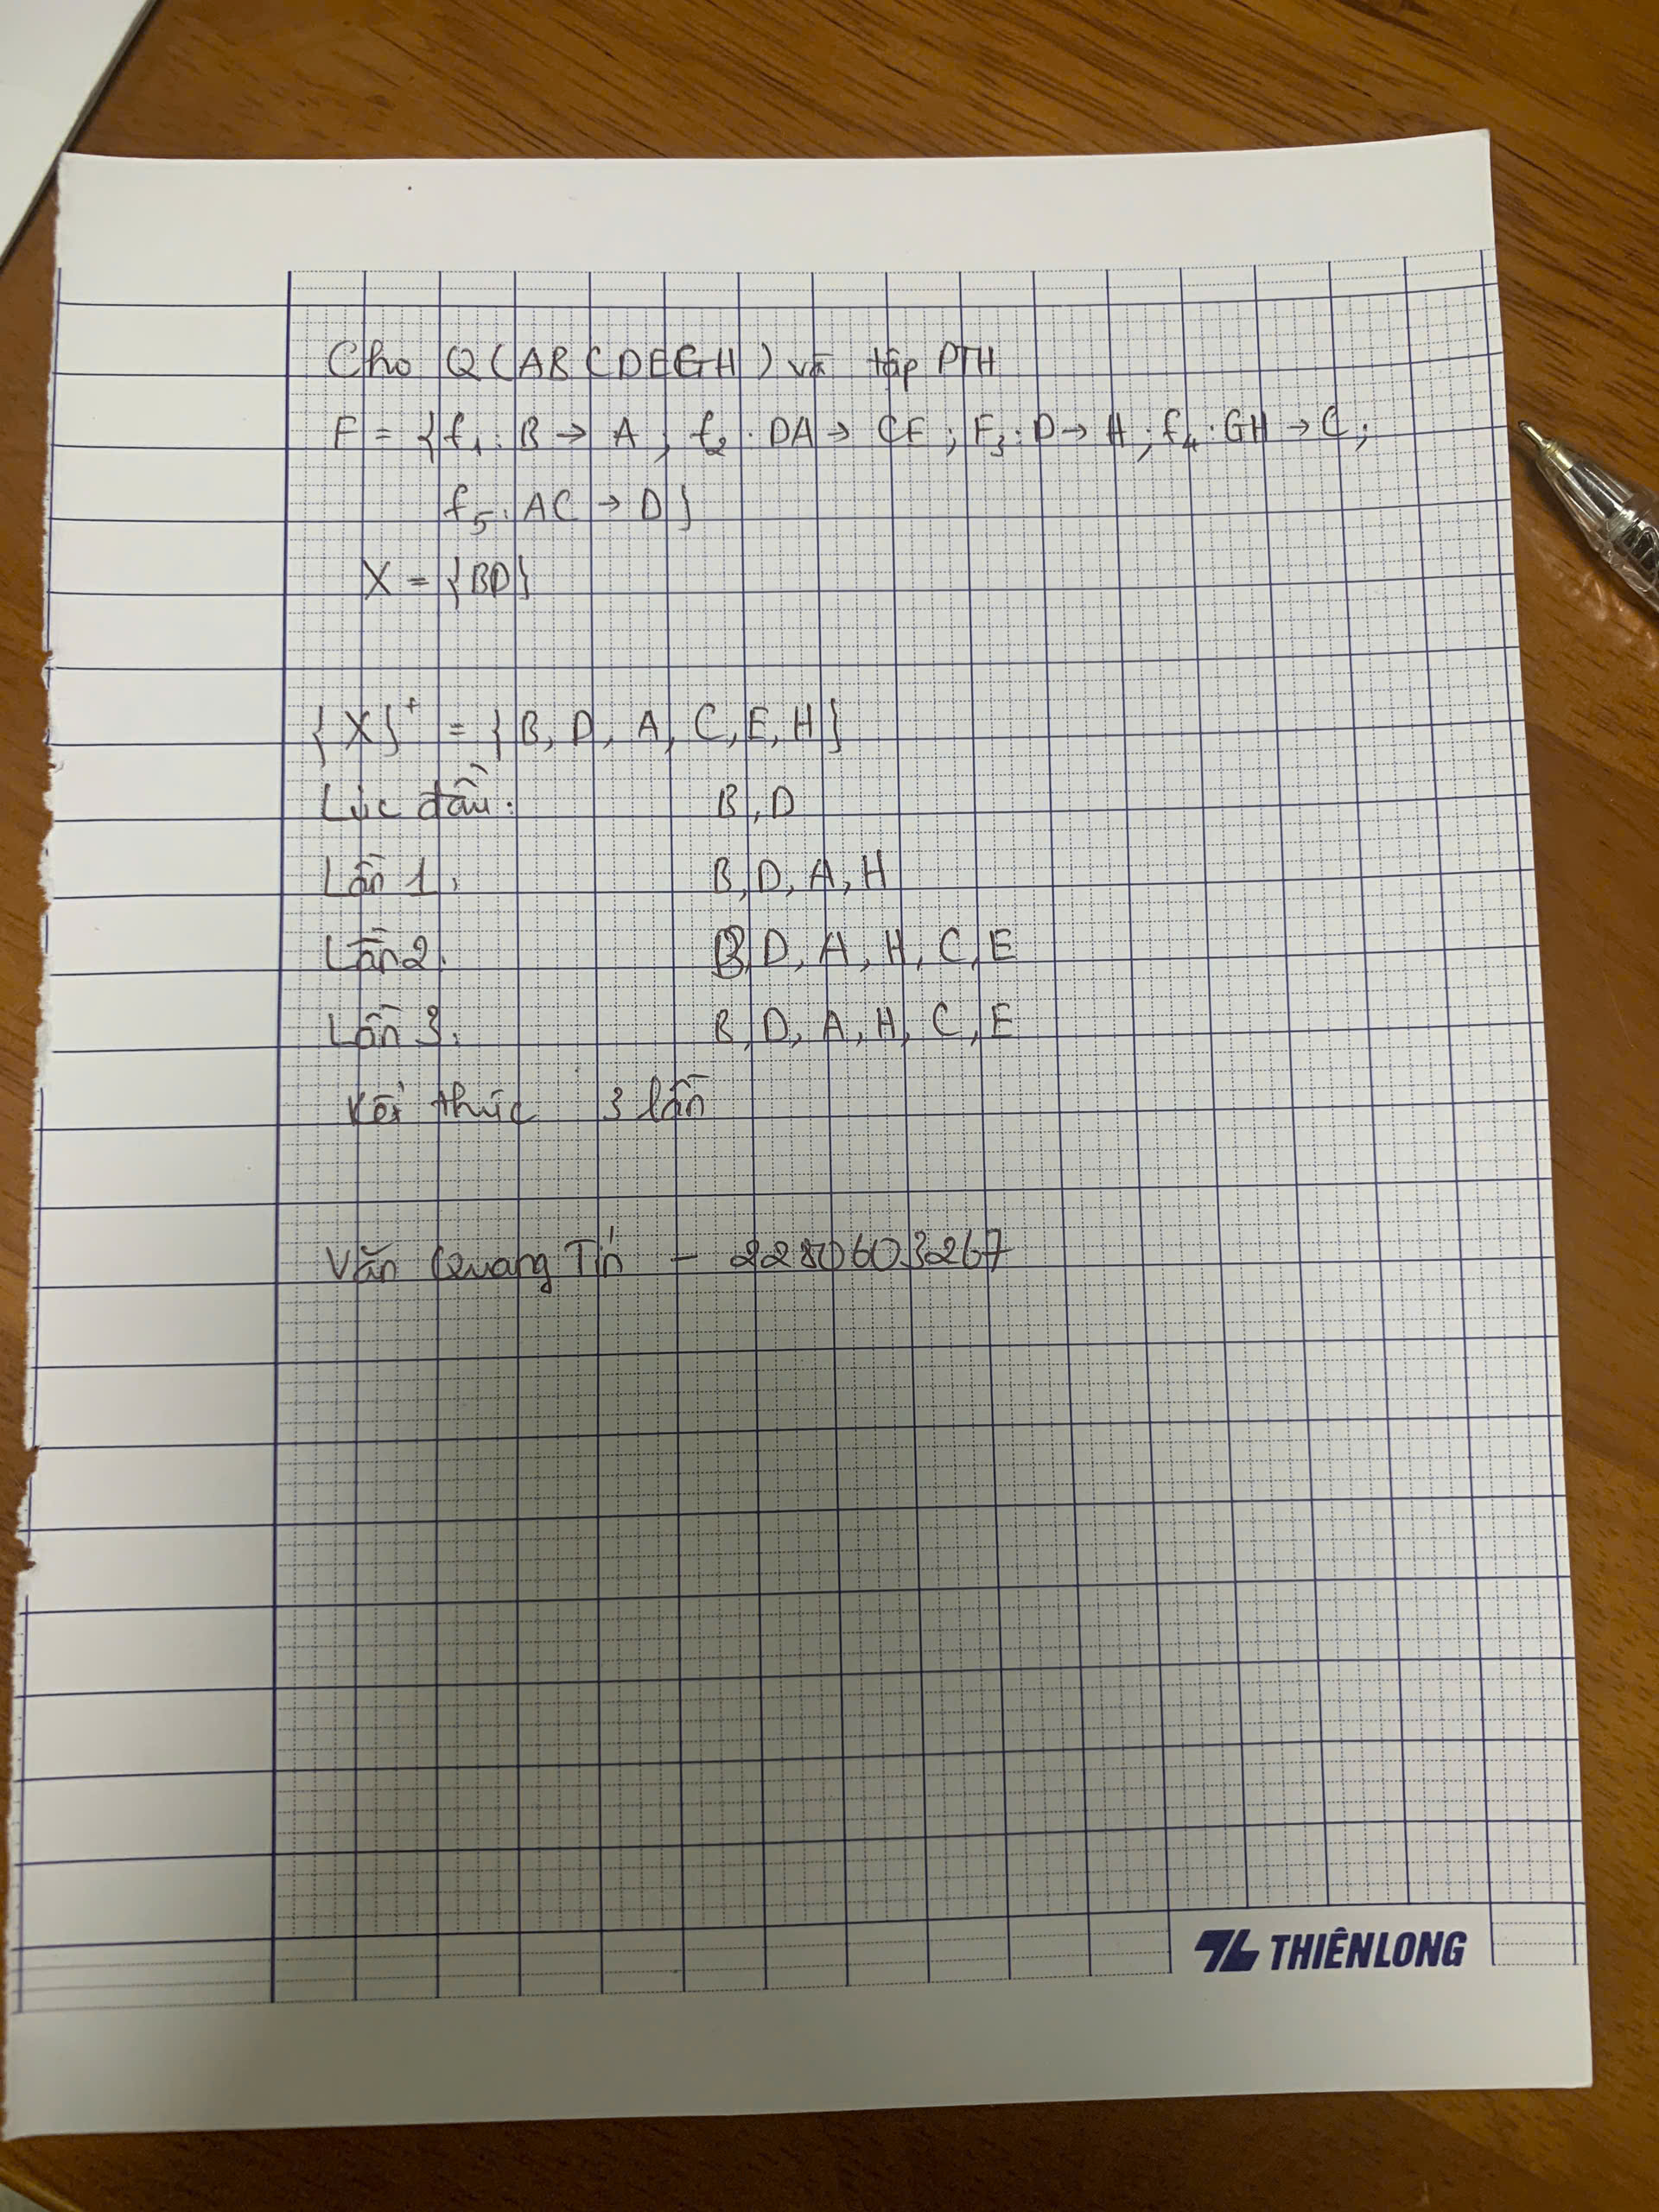 Cho Q(ABCDEGH) và tập PTH
F = {f1: B → A; f2: DA → CE; F3: D → H; f4: GH → C;
f5: AC → D}
X = {BD}
{X}+ = {B, D, A, C, E, H}
Lúc đầu: B, D
Lần 1: B, D, A, H
Lần 2: B, D, A, H, C, E
Lần 3: B, D, A, H, C, E
Kết thúc 3 lần
Văn Quang Tín - 2280603267
THIÊN LONG